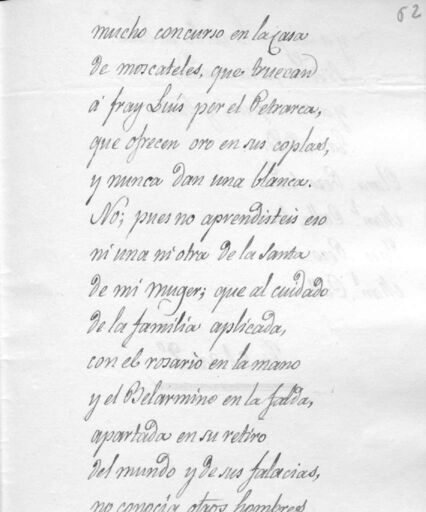 62
mucho concurso en la Casa
de moscateles, que truecand
á fray Luis por el Petrarca,
que ofrecen oro en sus coplas,
y nunca dan una blanca.
No; pues no aprendisteis eso
ni una ni otra de la Santa
de mi muger; que al cuidado
de la familia aplicada,
con el rosario en la mano
y el Belarmino en la falda,
apartada en su retiro
del mundo y de sus falacias,
no conocia otros hombres